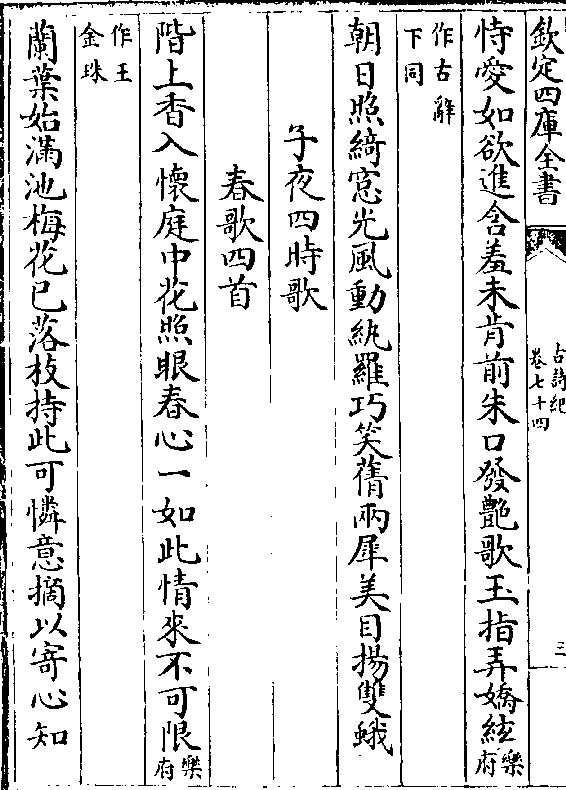 欽定四庫全書
古詩紀
卷七十四
三
恃愛如欲進含羞未肯前朱口發艶歌玉指弄嬌絃樂府
作古辭
下同
朝日照綺窓光風動紈羅巧笑蒨兩犀美目揚雙蛾
子夜四時歌
春歌四首
階上香入懷庭中花照眼春心一如此情來不可限樂府
作王
金珠
蘭葉始滿池梅花已落枝持此可憐意摘以寄心知